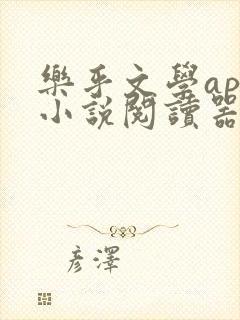 樂乎文學ap
小説閱讀器
彥澤